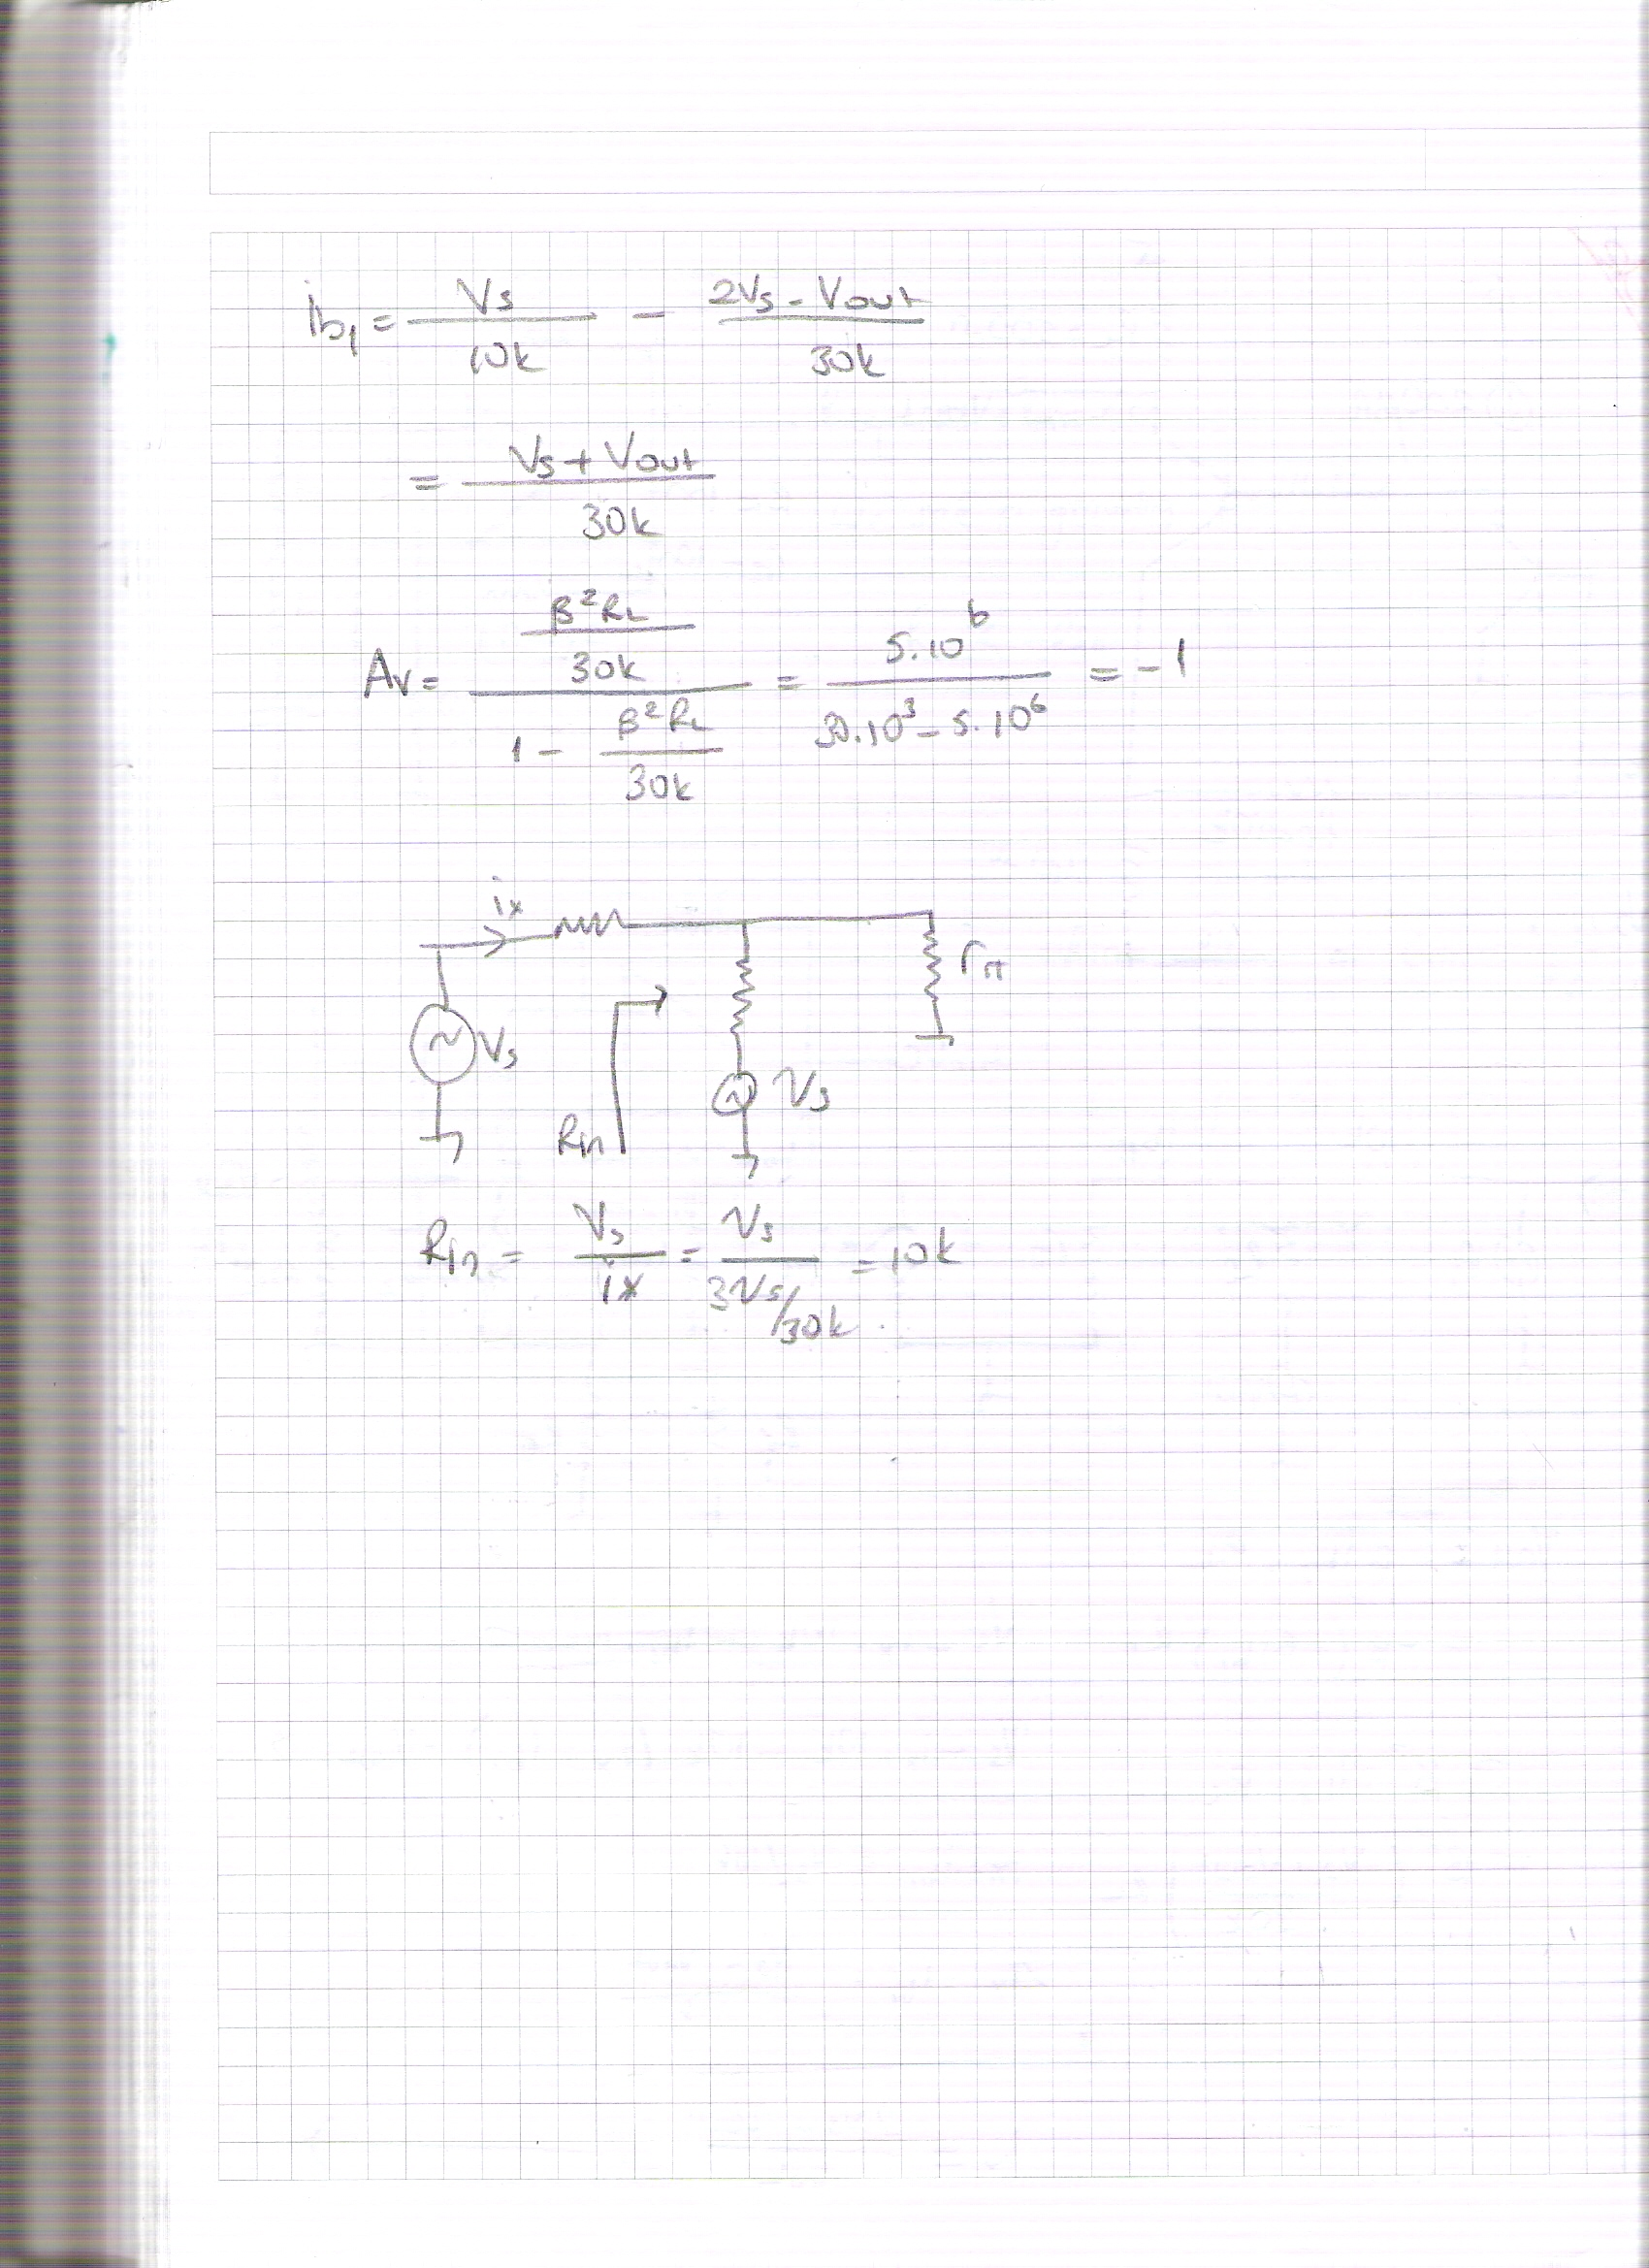 ib1 = Vs/10k - (2Vs - Vout)/30k
= (Vs + Vout)/30k
Av = (β²RL/30k)/(1 - β²RL/30k) = 5.10⁶/(30.10³ - 5.10⁶) = -1
ix
rπ
Vs
Vs
Rin
Rin = Vs/ix = Vs/(3Vs/30k) = 10k